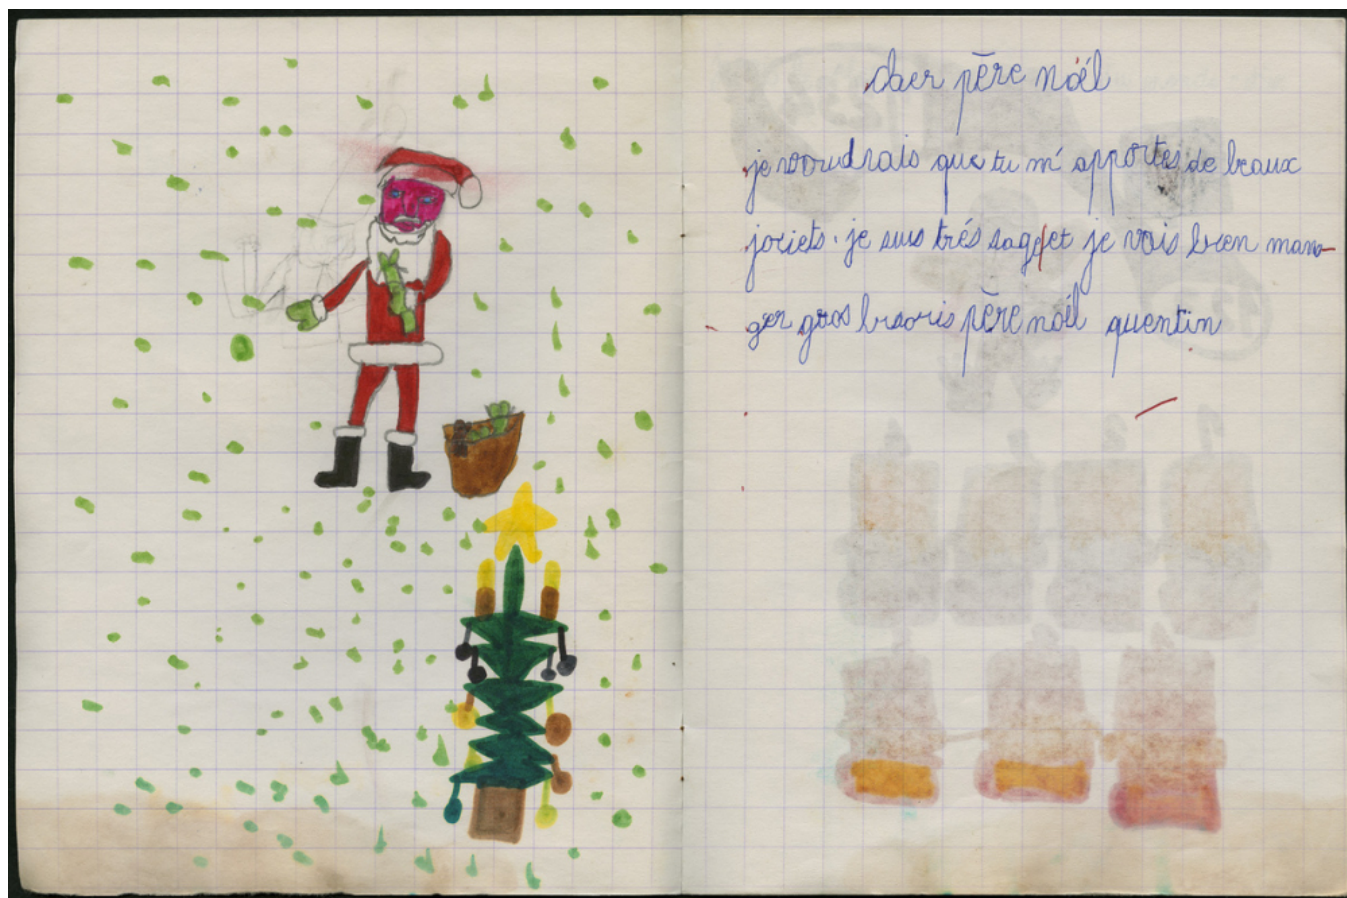 cher père noël
je voudrais que tu m'apportes de beaux
jouets. je suis trés sage et je vais bien man-
ger gros bisoris père noël quentin